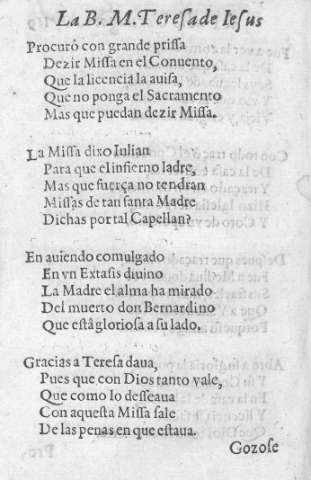 La B. M. Teresa de Iesus
Procurò con grande prissa
Dezir Missa en el Conuento,
Que la licencia la auisa,
Que no ponga el Sacramento
Mas que puedan dezir Missa.
La Missa dixo Iulian
Para que el infierno ladre,
Mas que fuerça no tendran
Missas de tan santa Madre
Dichas por tal Capellan?
En auiendo comulgado
En vn Extasis diuino
La Madre el alma ha mirado
Del muerto don Bernardino
Que està gloriosa a su lado.
Gracias a Teresa daua,
Pues que con Dios tanto vale,
Que como lo desseaua
Con aquesta Missa sale
De las penas en que estaua.
Gozose